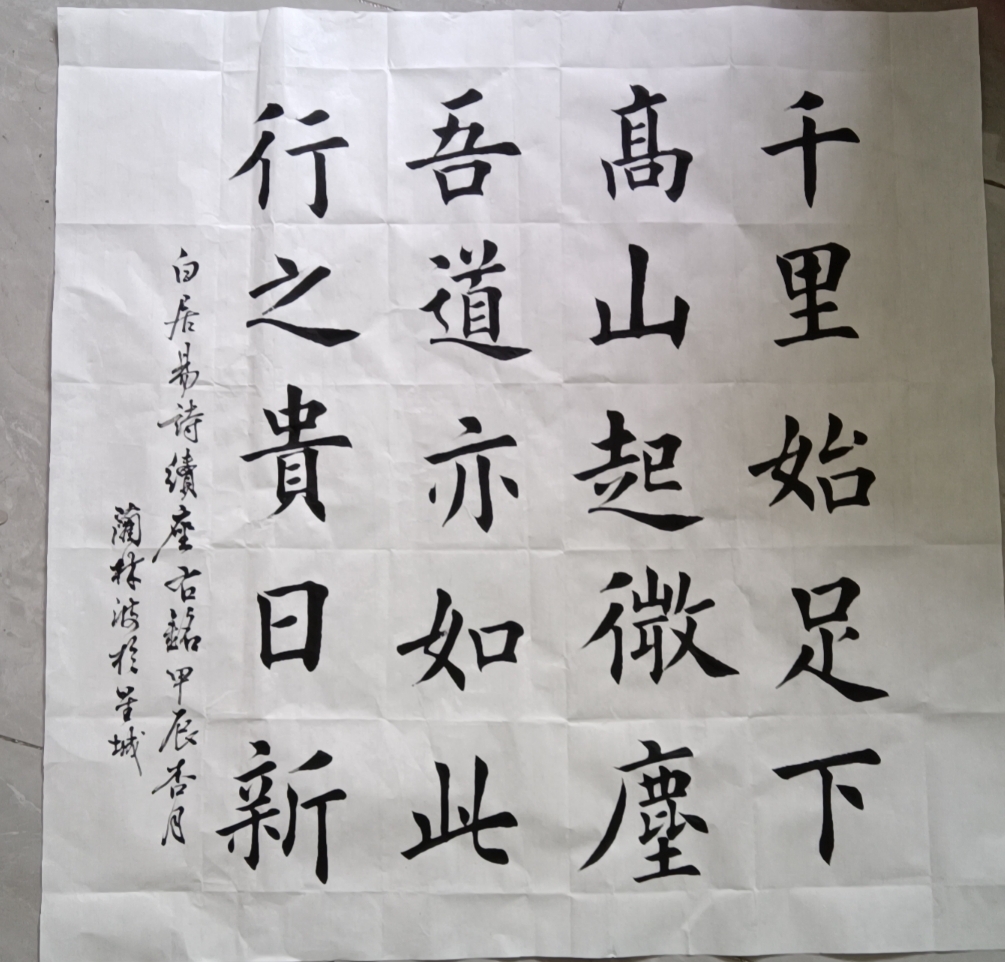 千里始足下
髙山起微塵
吾道亦如此
行之貴日新
白居易詩續座右銘甲辰杏月
蘭林波於星城